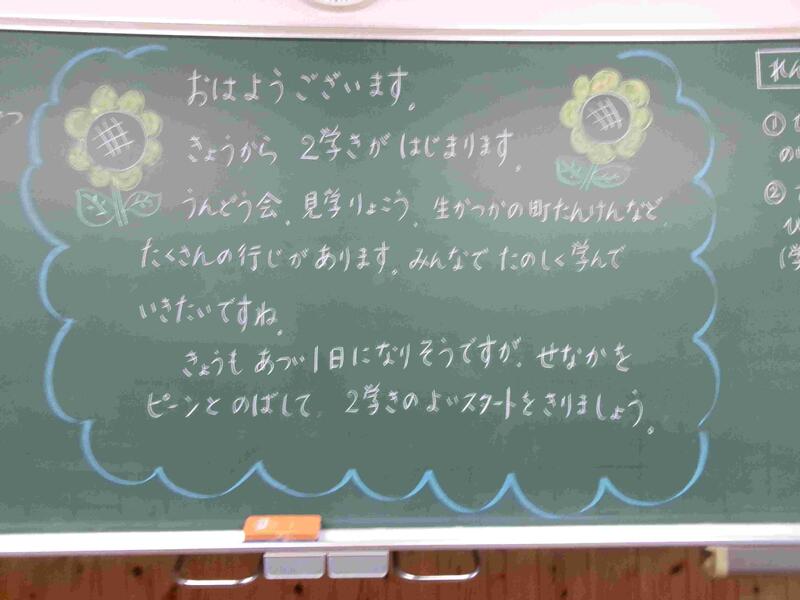 おはようございます。
きょうから 2学きが はじまります。
うんどう会、見学りょこう、生かつかの町たんけんなど
たくさんの行じがあります。みんなで たのしく学んで
いきたいですね。
きょうも あつい1日になりそうですが、せなかを
ピーンと のばして 2学きのよいスタートをきりましょう。
れん
①
②